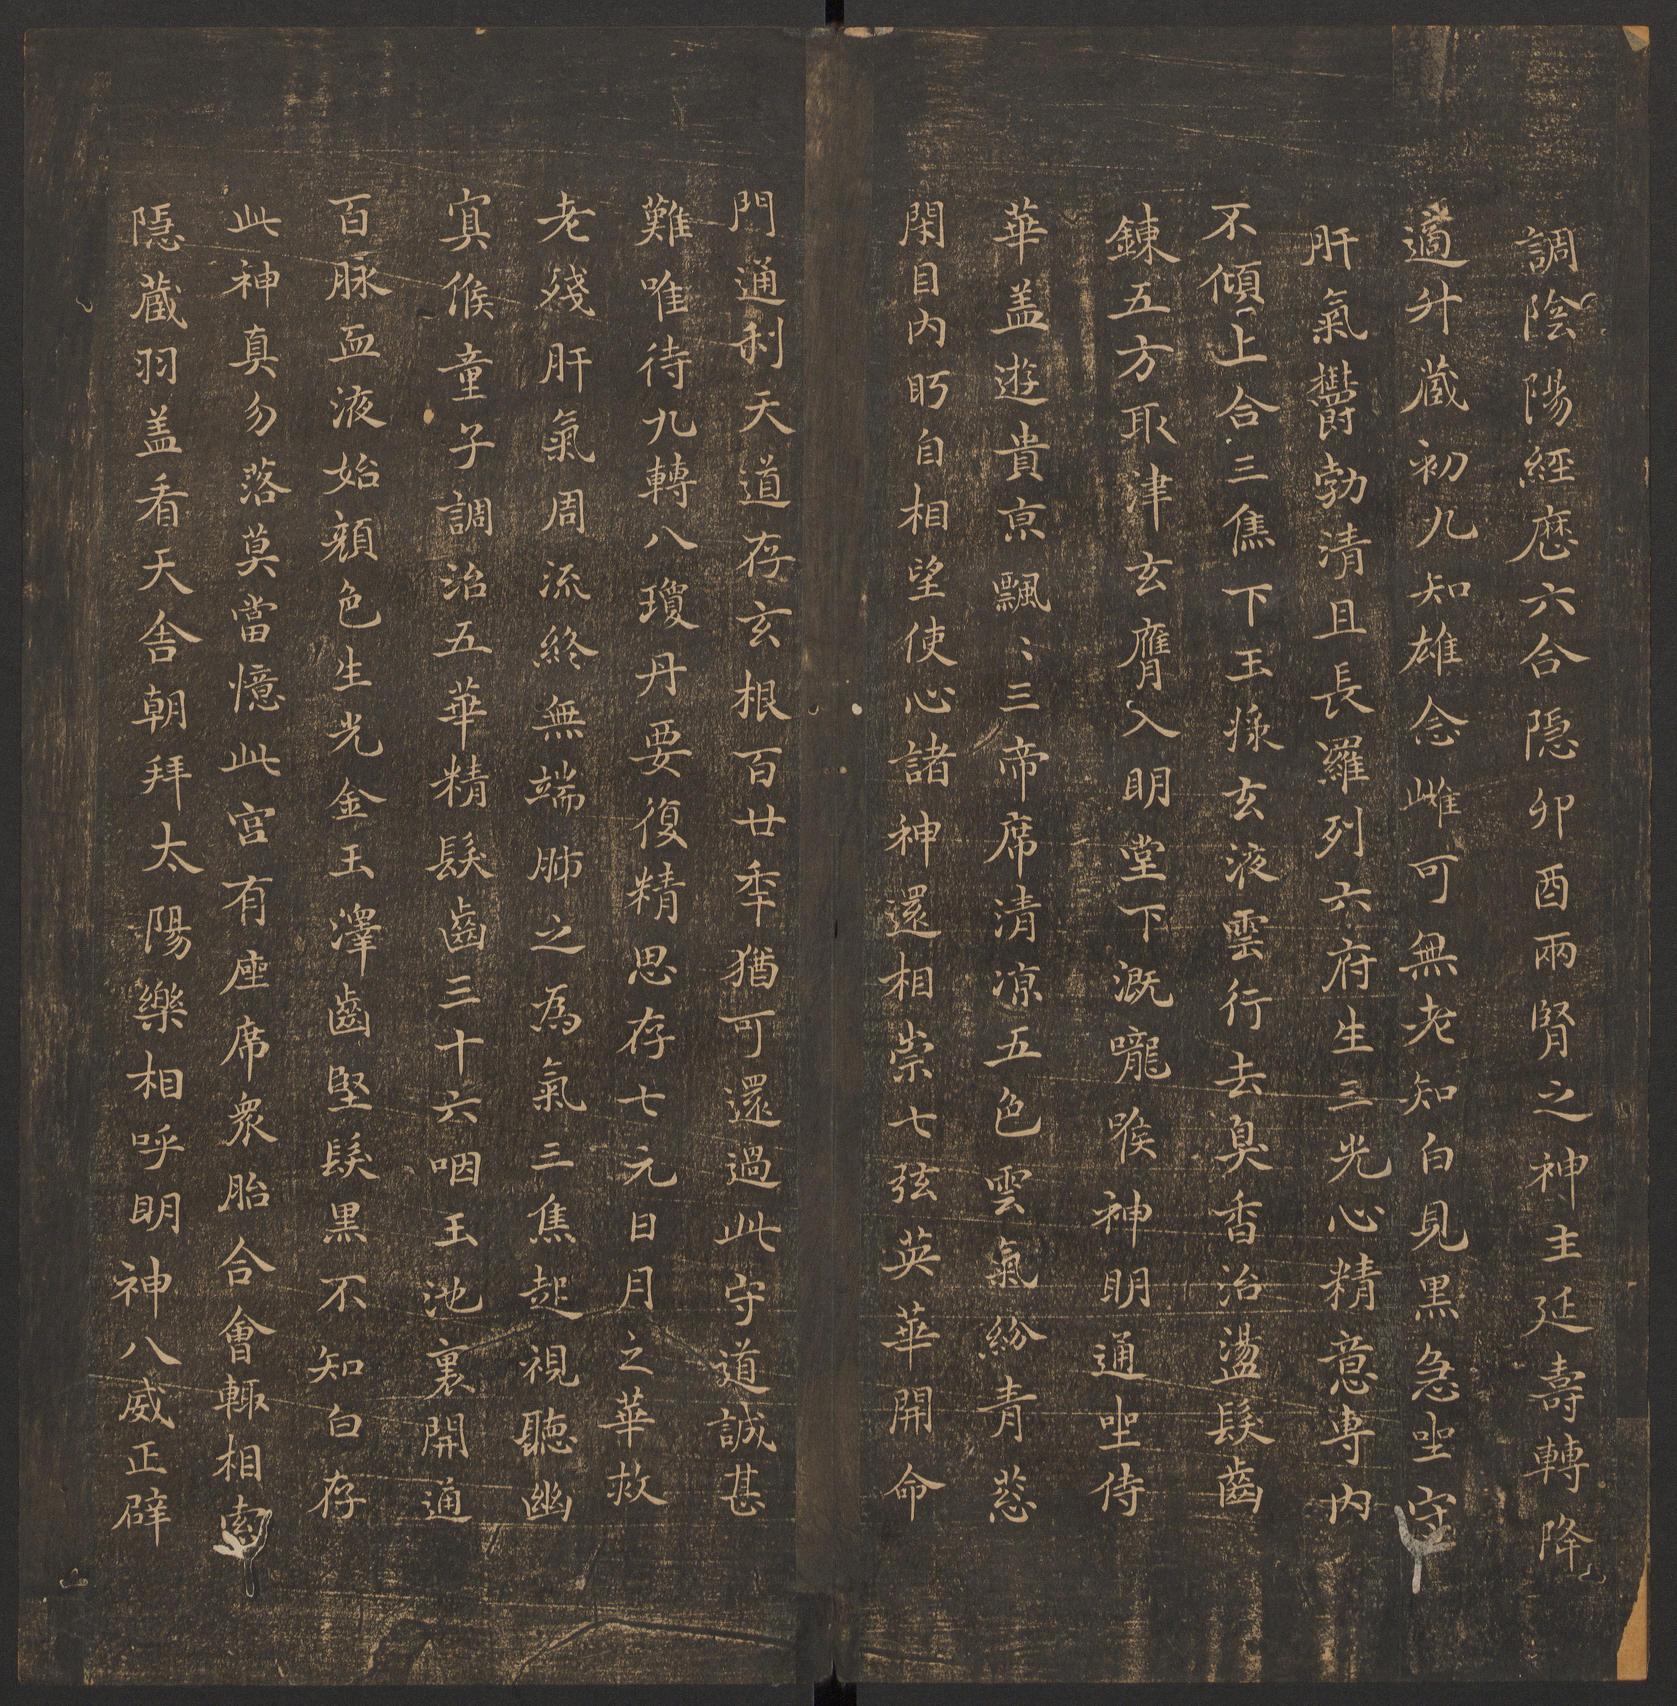 調陰陽經歷六合隱卯酉兩腎之神主延壽轉降
適升藏初九知雄念雌可無老知白見黑急坐守
肝氣欝勃清且長羅列六府生三光心精意專內
不傾上合三焦下玉㨾玄液雲行去臭香治盪髮齒
錬五方取津玄膺入明堂下溉嚨喉神明通坐侍
華盖遊貴亰飄〻三帝席清凉五色雲氣紛青葱
閑目內眄自相望使心諸神還相崇七弦英華開命
門通利天道存玄根百廿秊猶可還過此守道誠甚
難唯待九轉八瓊丹要復精思存七元日月之華救
老殘肝氣周流終無端肺之為氣三焦起視聽幽
寘候童子調治五華精髮齒三十六咽玉池裏開通
百脉血液始顏色生光金玉澤齒堅髮黑不知白存
此神真勿落莫當憶此宮有座席衆胎合會輙相索
隱藏羽盖看天舍朝拜太陽樂相呼明神八威正辟